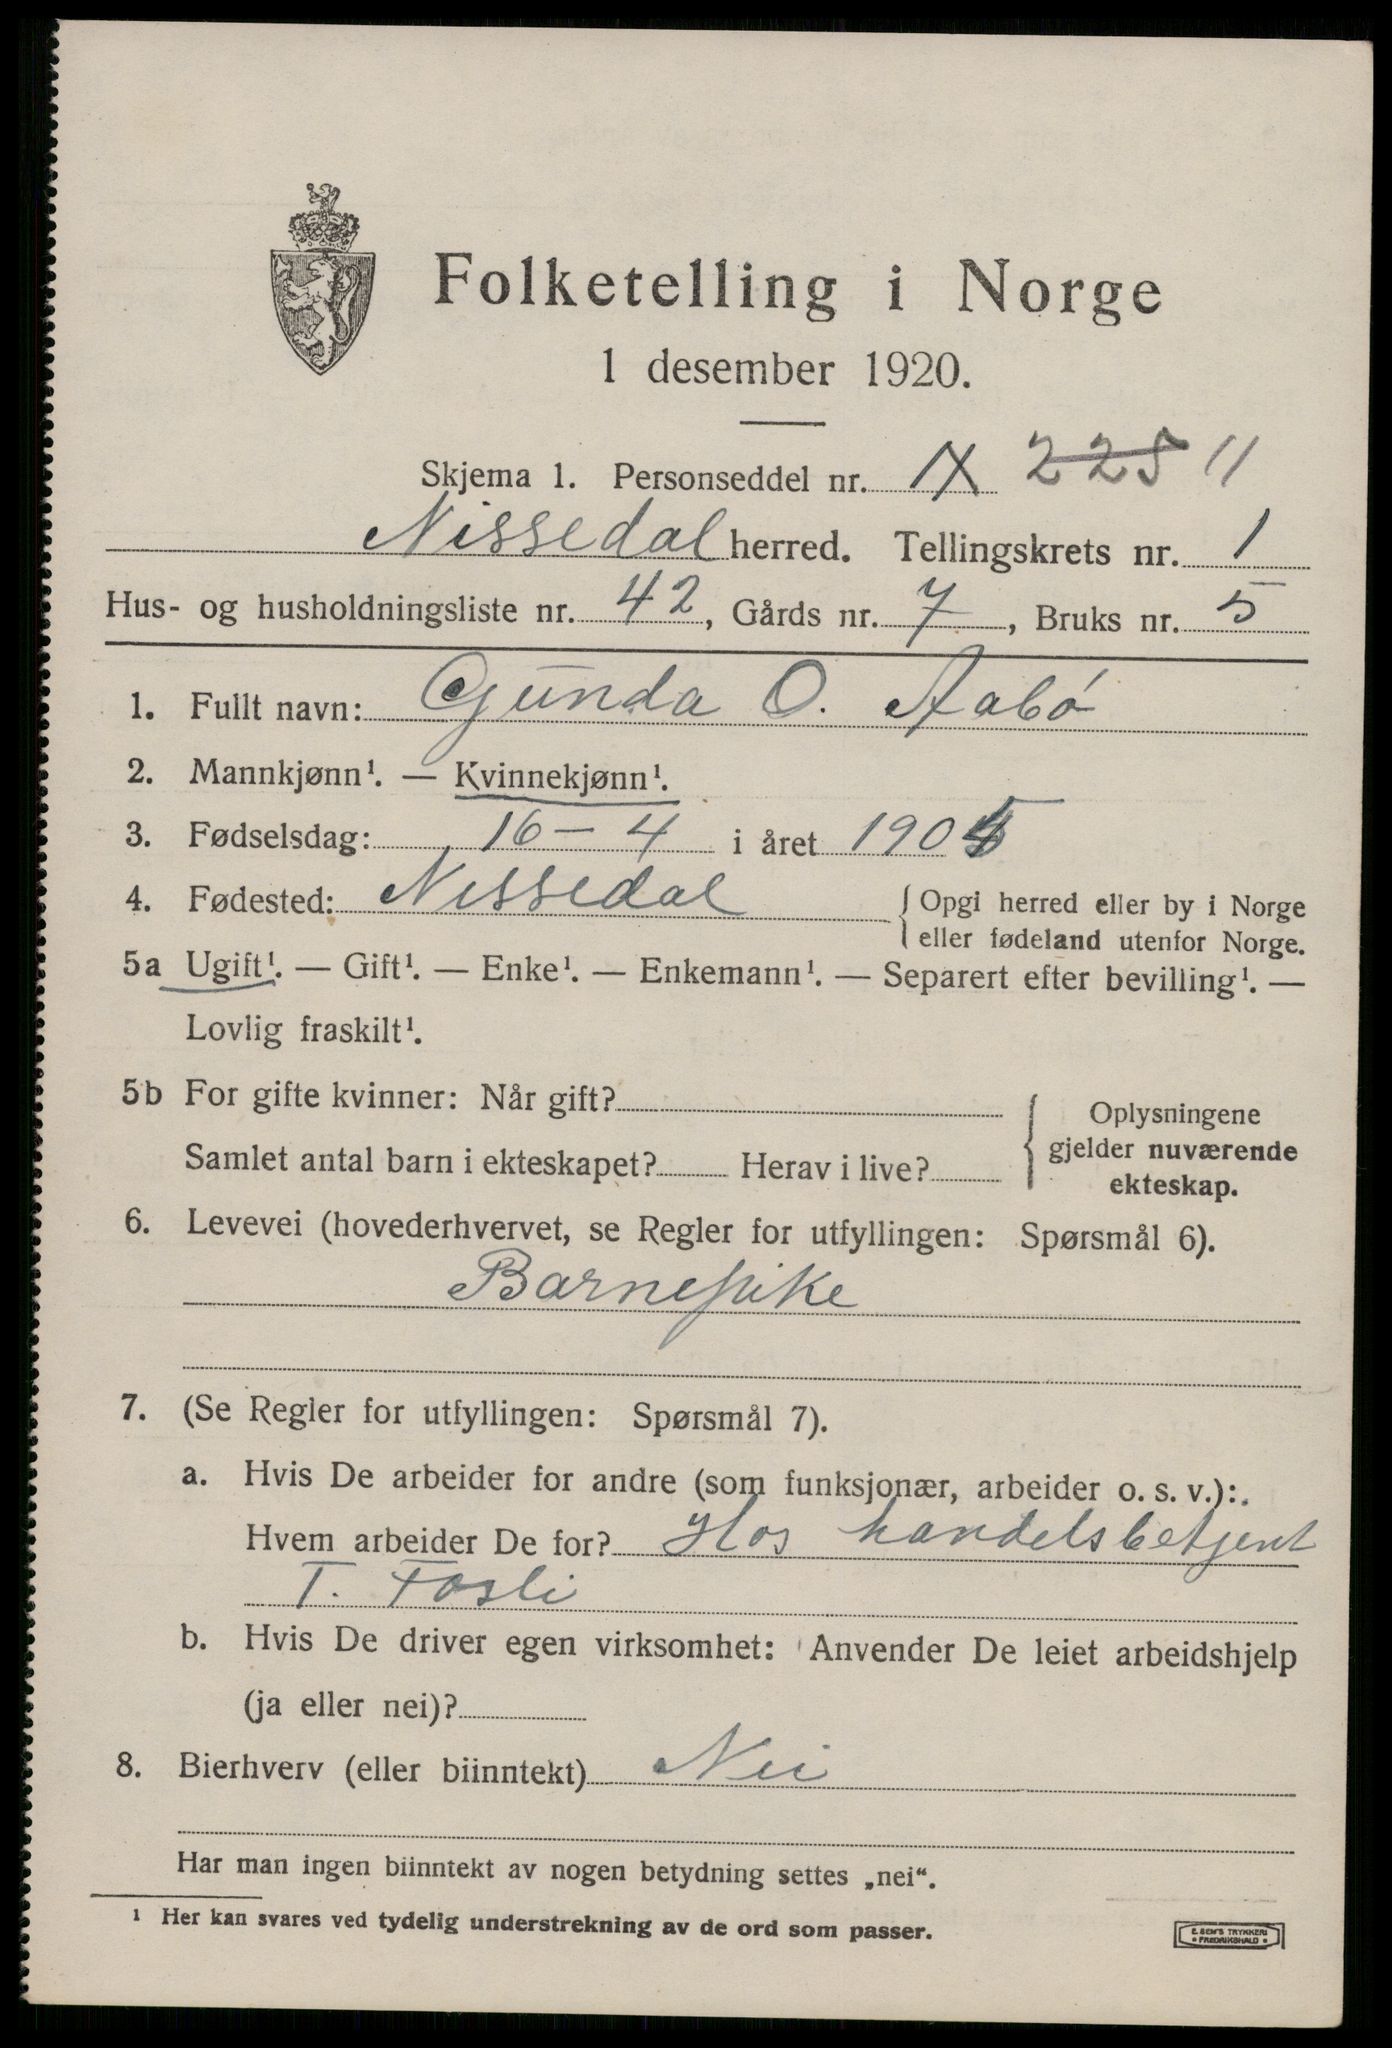 Folketelling i Norge
1 desember 1920.
Skjema 1. Personseddel nr. 1X 225 11
Nissedal herred. Tellingskrets nr. 1
Hus- og husholdningsliste nr. 42, Gårds nr. 7, Bruks nr. 5
1. Fullt navn: Gunda O. Aabø
2. Mannkjønn¹. — Kvinnekjønn¹.
3. Fødselsdag: 16 - 4 i året 1905
4. Fødested: Nissedal { Opgi herred eller by i Norge
eller fødeland utenfor Norge.
5a Ugift¹. — Gift¹. — Enke¹. — Enkemann¹. — Separert efter bevilling¹. —
Lovlig fraskilt¹.
5b For gifte kvinner: Når gift?
Samlet antal barn i ekteskapet? Herav i live?
Oplysningene
gjelder nuværende
ekteskap.
6. Levevei (hovederhvervet, se Regler for utfyllingen: Spørsmål 6).
Barnepike
7. (Se Regler for utfyllingen: Spørsmål 7).
a. Hvis De arbeider for andre (som funksjonær, arbeider o. s. v.):.
Hvem arbeider De for? Hos handelsbetjent
T. Fosli
b. Hvis De driver egen virksomhet: Anvender De leiet arbeidshjelp
(ja eller nei)?
8. Bierhverv (eller biinntekt) Nei
Har man ingen biinntekt av nogen betydning settes „nei“.
¹ Her kan svares ved tydelig understrekning av de ord som passer.
E. SEM'S TRYKKERI
• FREDRIKSHALD •